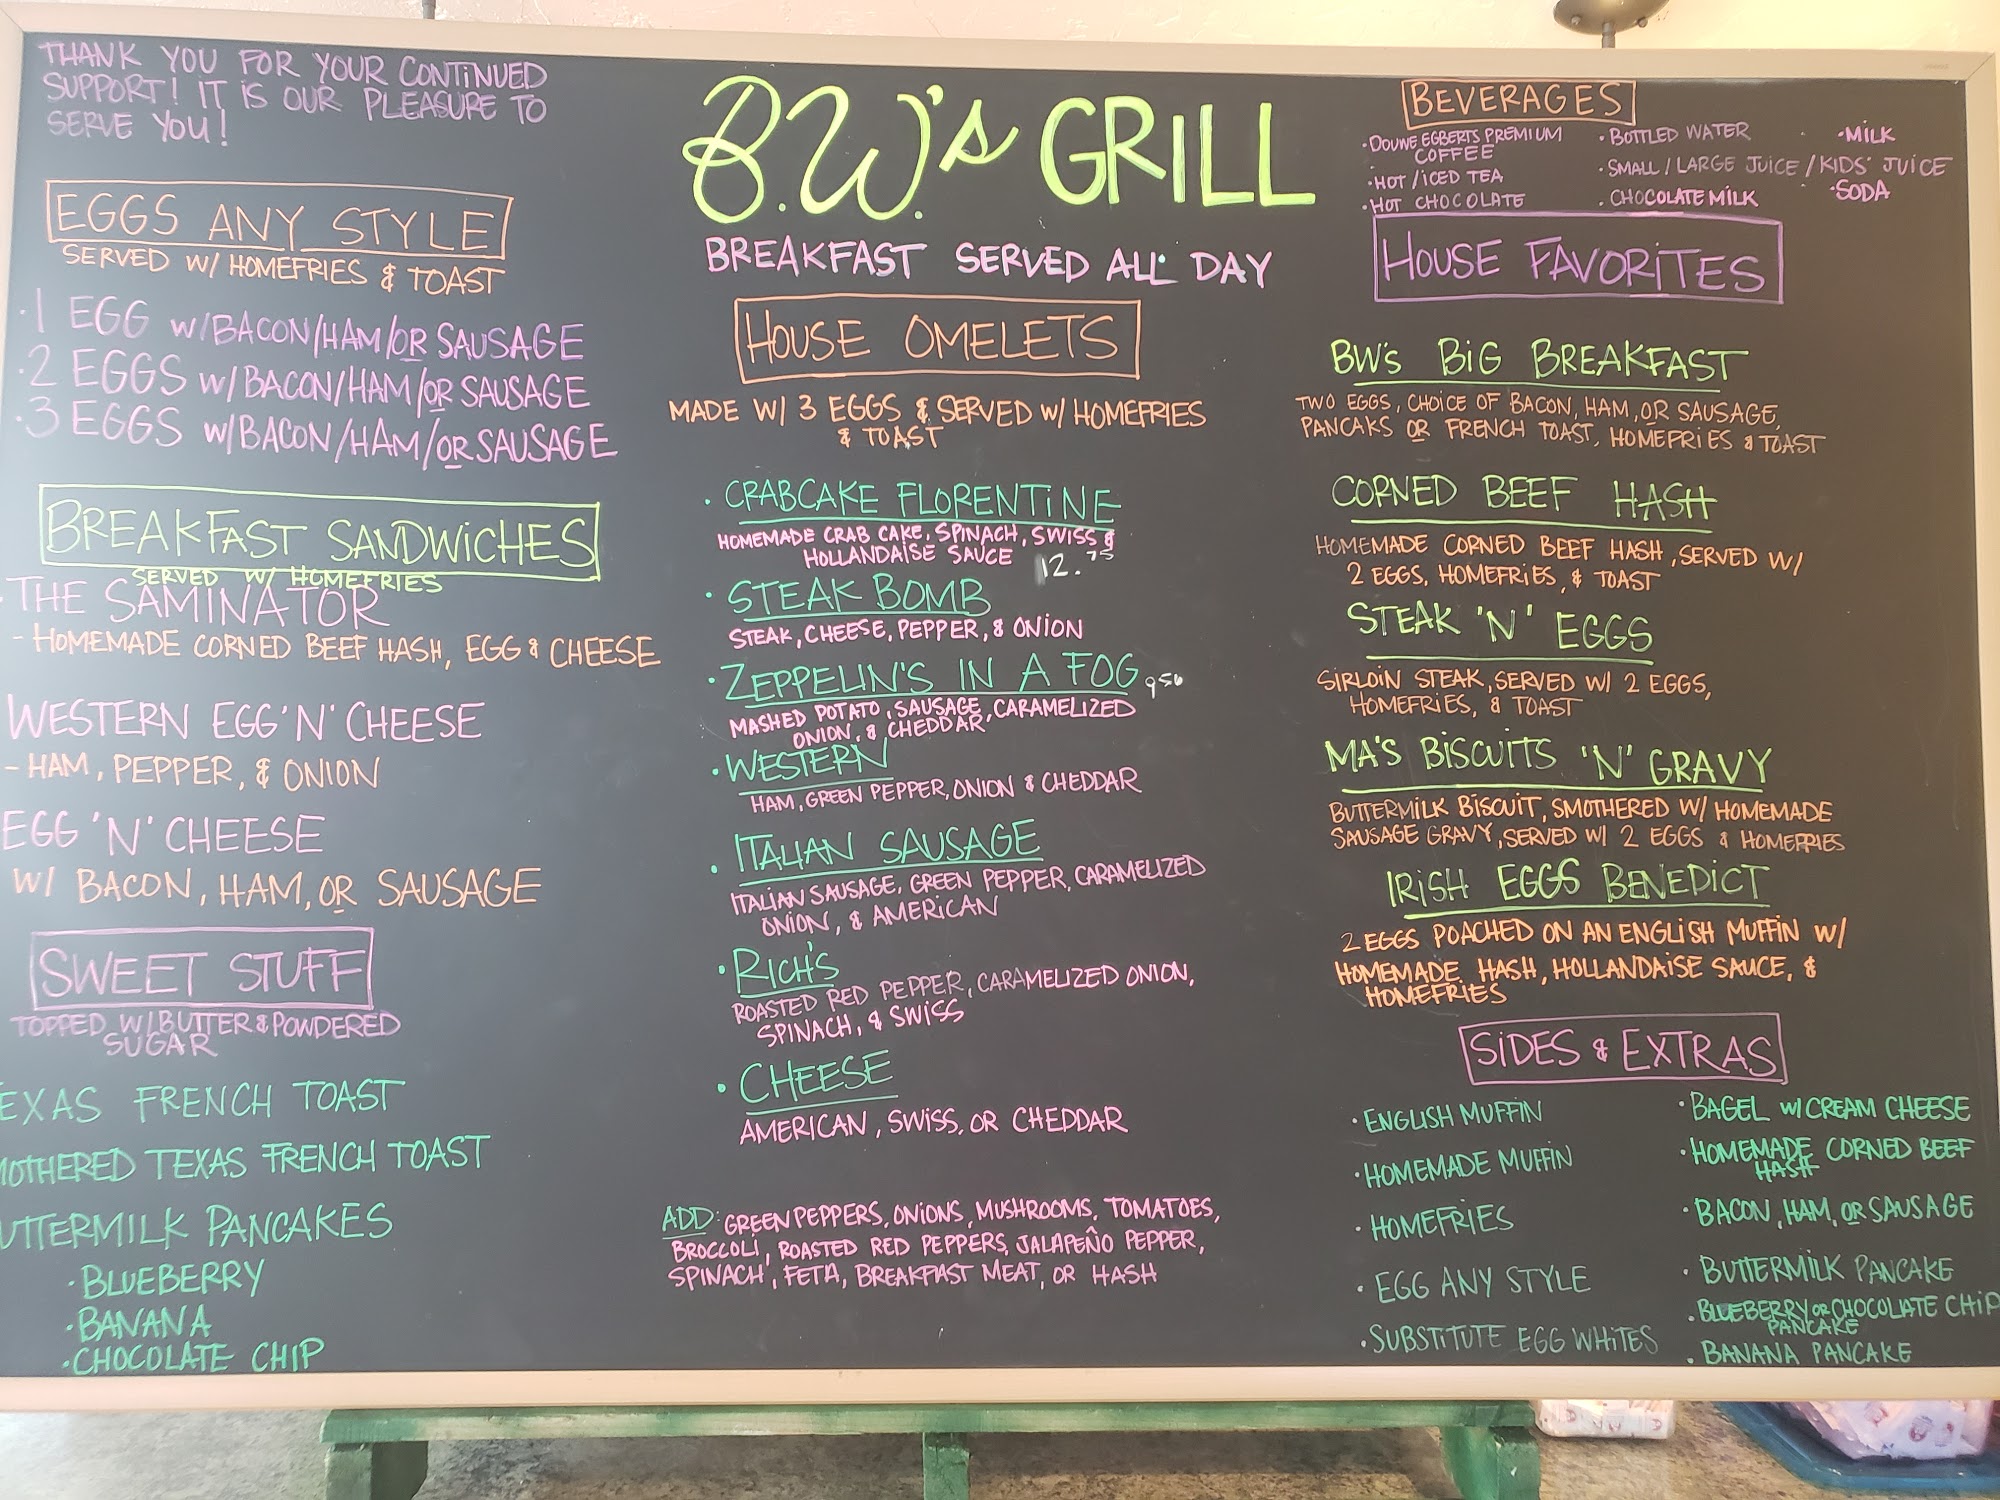 THANK YOU FOR YOUR CONTINUED
SUPPORT! IT IS OUR PLEASURE TO
SERVE YOU!
EGGS ANY STYLE
SERVED W/ HOMEFRIES & TOAST
·1 EGG W/BACON/HAM/OR SAUSAGE
·2 EGGS W/BACON/HAM/OR SAUSAGE
·3 EGGS W/BACON/HAM/OR SAUSAGE
BREAKFAST SANDWICHES
SERVED W/ HOMEFRIES
·THE SAMINATOR
- HOMEMADE CORNED BEEF HASH, EGG & CHEESE
WESTERN EGG 'N' CHEESE
- HAM, PEPPER, & ONION
EGG 'N' CHEESE
W/ BACON, HAM, OR SAUSAGE
SWEET STUFF
TOPPED W/BUTTER & POWDERED
SUGAR
EXAS FRENCH TOAST
MOTHERED TEXAS FRENCH TOAST
UTTERMILK PANCAKES
·BLUEBERRY
·BANANA
·CHOCOLATE CHIP
B.W.'s GRILL
BREAKFAST SERVED ALL DAY
HOUSE OMELETS
MADE W/ 3 EGGS & SERVED W/ HOMEFRIES
& TOAST
· CRABCAKE FLORENTINE
HOMEMADE CRAB CAKE, SPINACH, SWISS &
HOLLANDAISE SAUCE 12.75
· STEAK BOMB
STEAK, CHEESE, PEPPER, & ONION
· ZEPPELIN'S IN A FOG 950
MASHED POTATO, SAUSAGE, CARAMELIZED
ONION, & CHEDDAR
· WESTERN
HAM, GREEN PEPPER, ONION & CHEDDAR
· ITALIAN SAUSAGE
ITALIAN SAUSAGE, GREEN PEPPER, CARAMELIZED
ONION, & AMERICAN
· RICH'S
ROASTED RED PEPPER, CARAMELIZED ONION,
SPINACH, & SWISS
· CHEESE
AMERICAN, SWISS, OR CHEDDAR
ADD: GREEN PEPPERS, ONIONS, MUSHROOMS, TOMATOES,
BROCCOLI, ROASTED RED PEPPERS, JALAPEÑO PEPPER,
SPINACH, FETA, BREAKFAST MEAT, OR HASH
BEVERAGES
·DOUWE EGBERTS PREMIUM
COFFEE
·HOT/ICED TEA
·HOT CHOCOLATE
·BOTTLED WATER
·SMALL/LARGE JUICE/KIDS' JUICE
·CHOCOLATE MILK
·MILK
·SODA
HOUSE FAVORITES
BW'S BIG BREAKFAST
TWO EGGS, CHOICE OF BACON, HAM, OR SAUSAGE,
PANCAKS OR FRENCH TOAST, HOMEFRIES & TOAST
CORNED BEEF HASH
HOMEMADE CORNED BEEF HASH, SERVED W/
2 EGGS, HOMEFRIES, & TOAST
STEAK 'N' EGGS
SIRLOIN STEAK, SERVED W/ 2 EGGS,
HOMEFRIES, & TOAST
MA'S BISCUITS 'N' GRAVY
BUTTERMILK BISCUIT, SMOTHERED W/ HOMEMADE
SAUSAGE GRAVY, SERVED W/ 2 EGGS & HOMEFRIES
IRISH EGGS BENEDICT
2 EGGS POACHED ON AN ENGLISH MUFFIN W/
HOMEMADE HASH, HOLLANDAISE SAUCE, &
HOMEFRIES
SIDES & EXTRAS
·ENGLISH MUFFIN
·HOMEMADE MUFFIN
·HOMEFRIES
·EGG ANY STYLE
·SUBSTITUTE EGG WHITES
·BAGEL W/CREAM CHEESE
·HOMEMADE CORNED BEEF
HASH
·BACON, HAM, OR SAUSAGE
·BUTTERMILK PANCAKE
·BLUEBERRY OR CHOCOLATE CHIP
PANCAKE
·BANANA PANCAKE